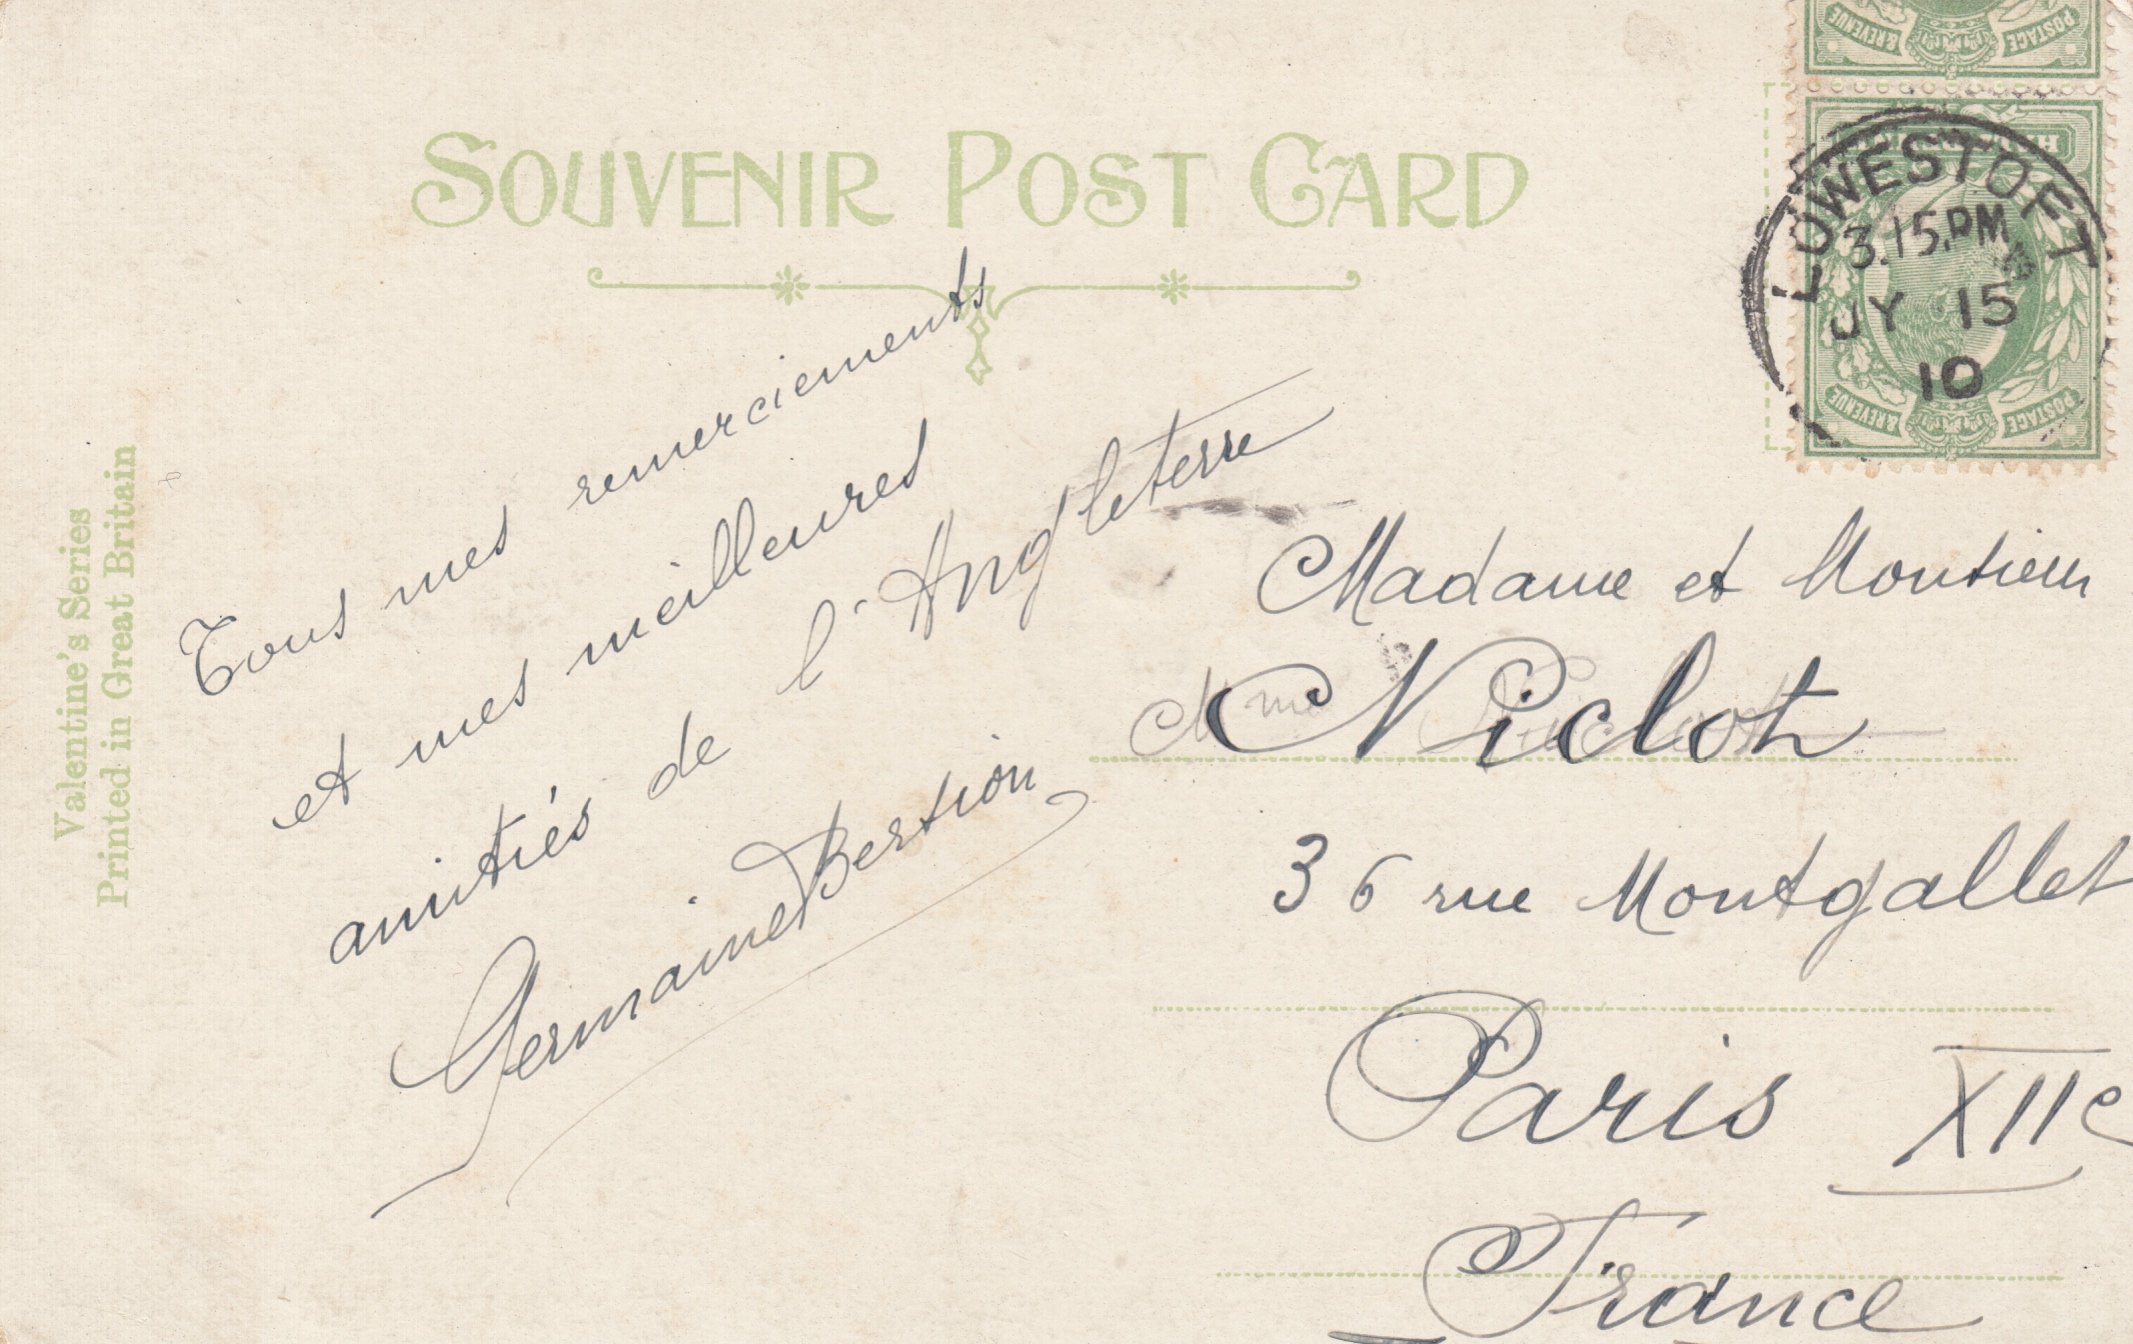 SOUVENIR POST CARD
Valentine's Series
Printed in Great Britain
POSTAGE
& REVENUE
POSTAGE
& REVENUE
LOWESTOFT
3.15.PM
JY 15
10
Tous mes remerciements
et mes meilleures
amitiés de l'Angleterre
Germaine Bertion
Madame et Monsieur
Mme
Niclot
36 rue Montgallet
Paris XIIe
France